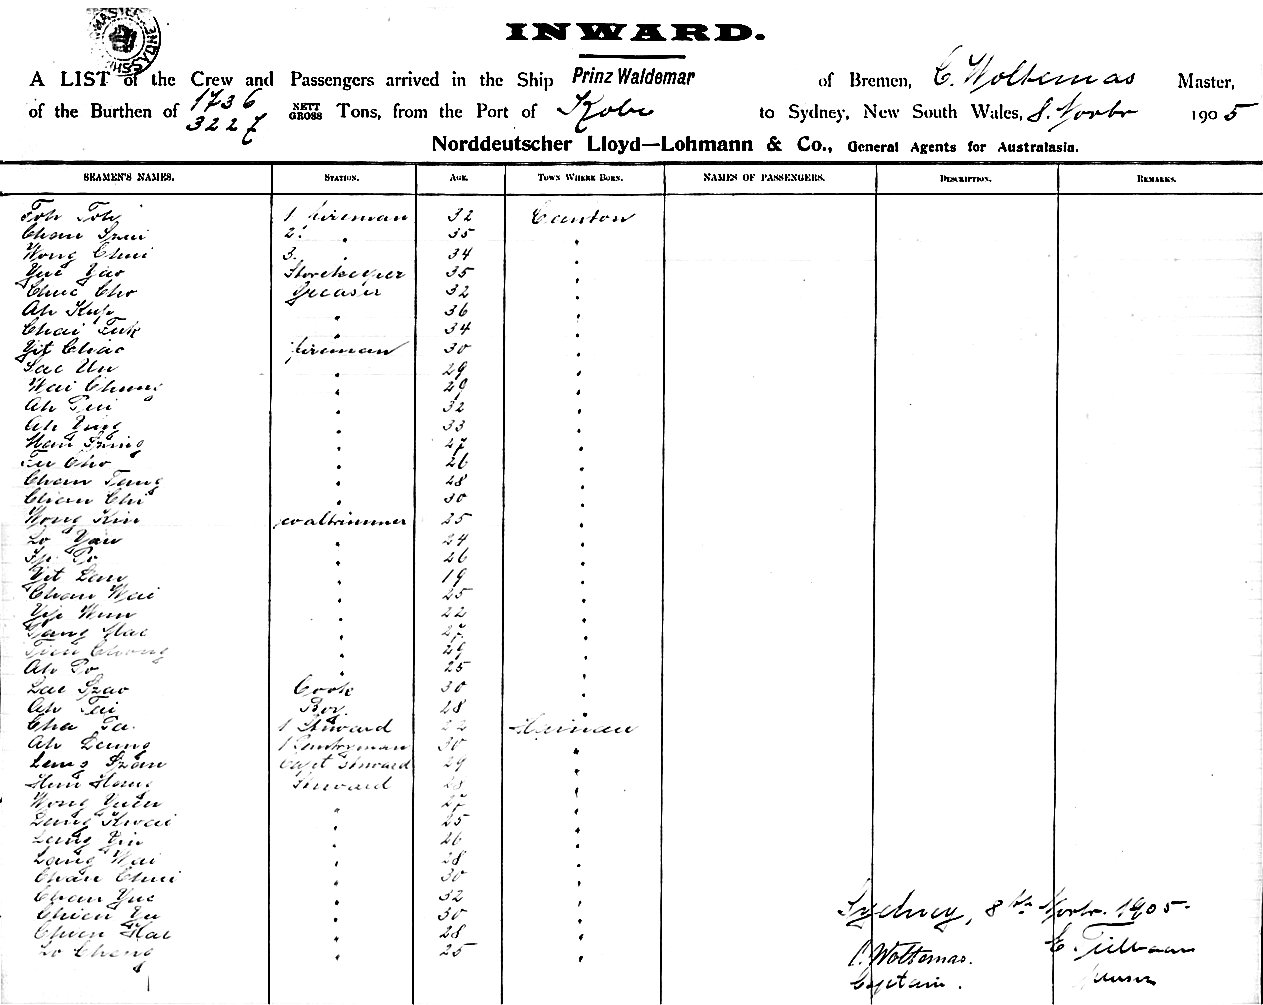 INWARD.
A LIST of the Crew and Passengers arrived in the Ship Prinz Waldemar of Bremen, C. Woltemas Master,
of the Burthen of 1736 3227 NETT GROSS Tons, from the Port of Kobe to Sydney, New South Wales, 8. Novbr 1905
Norddeutscher Lloyd—Lohmann & Co., General Agents for Australasia.
SEAMEN'S NAMES. STATION. AGE. TOWN WHERE BORN. NAMES OF PASSENGERS. DESCRIPTION. REMARKS.
Toh Toh 1 fireman 32 Canton
Chan Szui 2. " 35 "
Wong Chui 3. " 34 "
Yue Yao Storekeeper 35 "
Chue Cho Greaser 32 "
Ah Kup " 36 "
Chai Tuk " 34 "
Yit Chao fireman 30 "
Sae Un " 29 "
Wai Chung " 29 "
Ah Pui " 32 "
Ah Yung " 33 "
Man Szing " 27 "
Cho " 26 "
Chan Tang " 28 "
Chan Chi " 30 "
Wong Kin coaltrimmer 25 "
Lo Yau " 24 "
Ip Po " 26 "
Yit Lan " 19 "
Chan Wai " 25 "
Yip Wun " 22 "
Tang Hae " 27 "
Tien Choong " 29 "
Ah Po " 25 "
Lae Szao Cook 30 "
Ah Tai Boy. 28 "
Cha Ta. 1 Steward 22 Hainan
Ah Leung 1 Pantryman 30 "
Leng Szan Capt Steward 29 "
Hun Hong Steward 28 "
Wong Yuen " 27 "
Lang Kwai " 25 "
Lang Yin " 26 "
Lang Wai " 28 "
Chan Chui " 30 "
Chan Yue " 32 "
Chien Yu " 30 "
Chun Hae " 28 "
Lo Cheng " 25 "
Sydney, 8th Novbr. 1905.
C. Woltemas.
Captain.